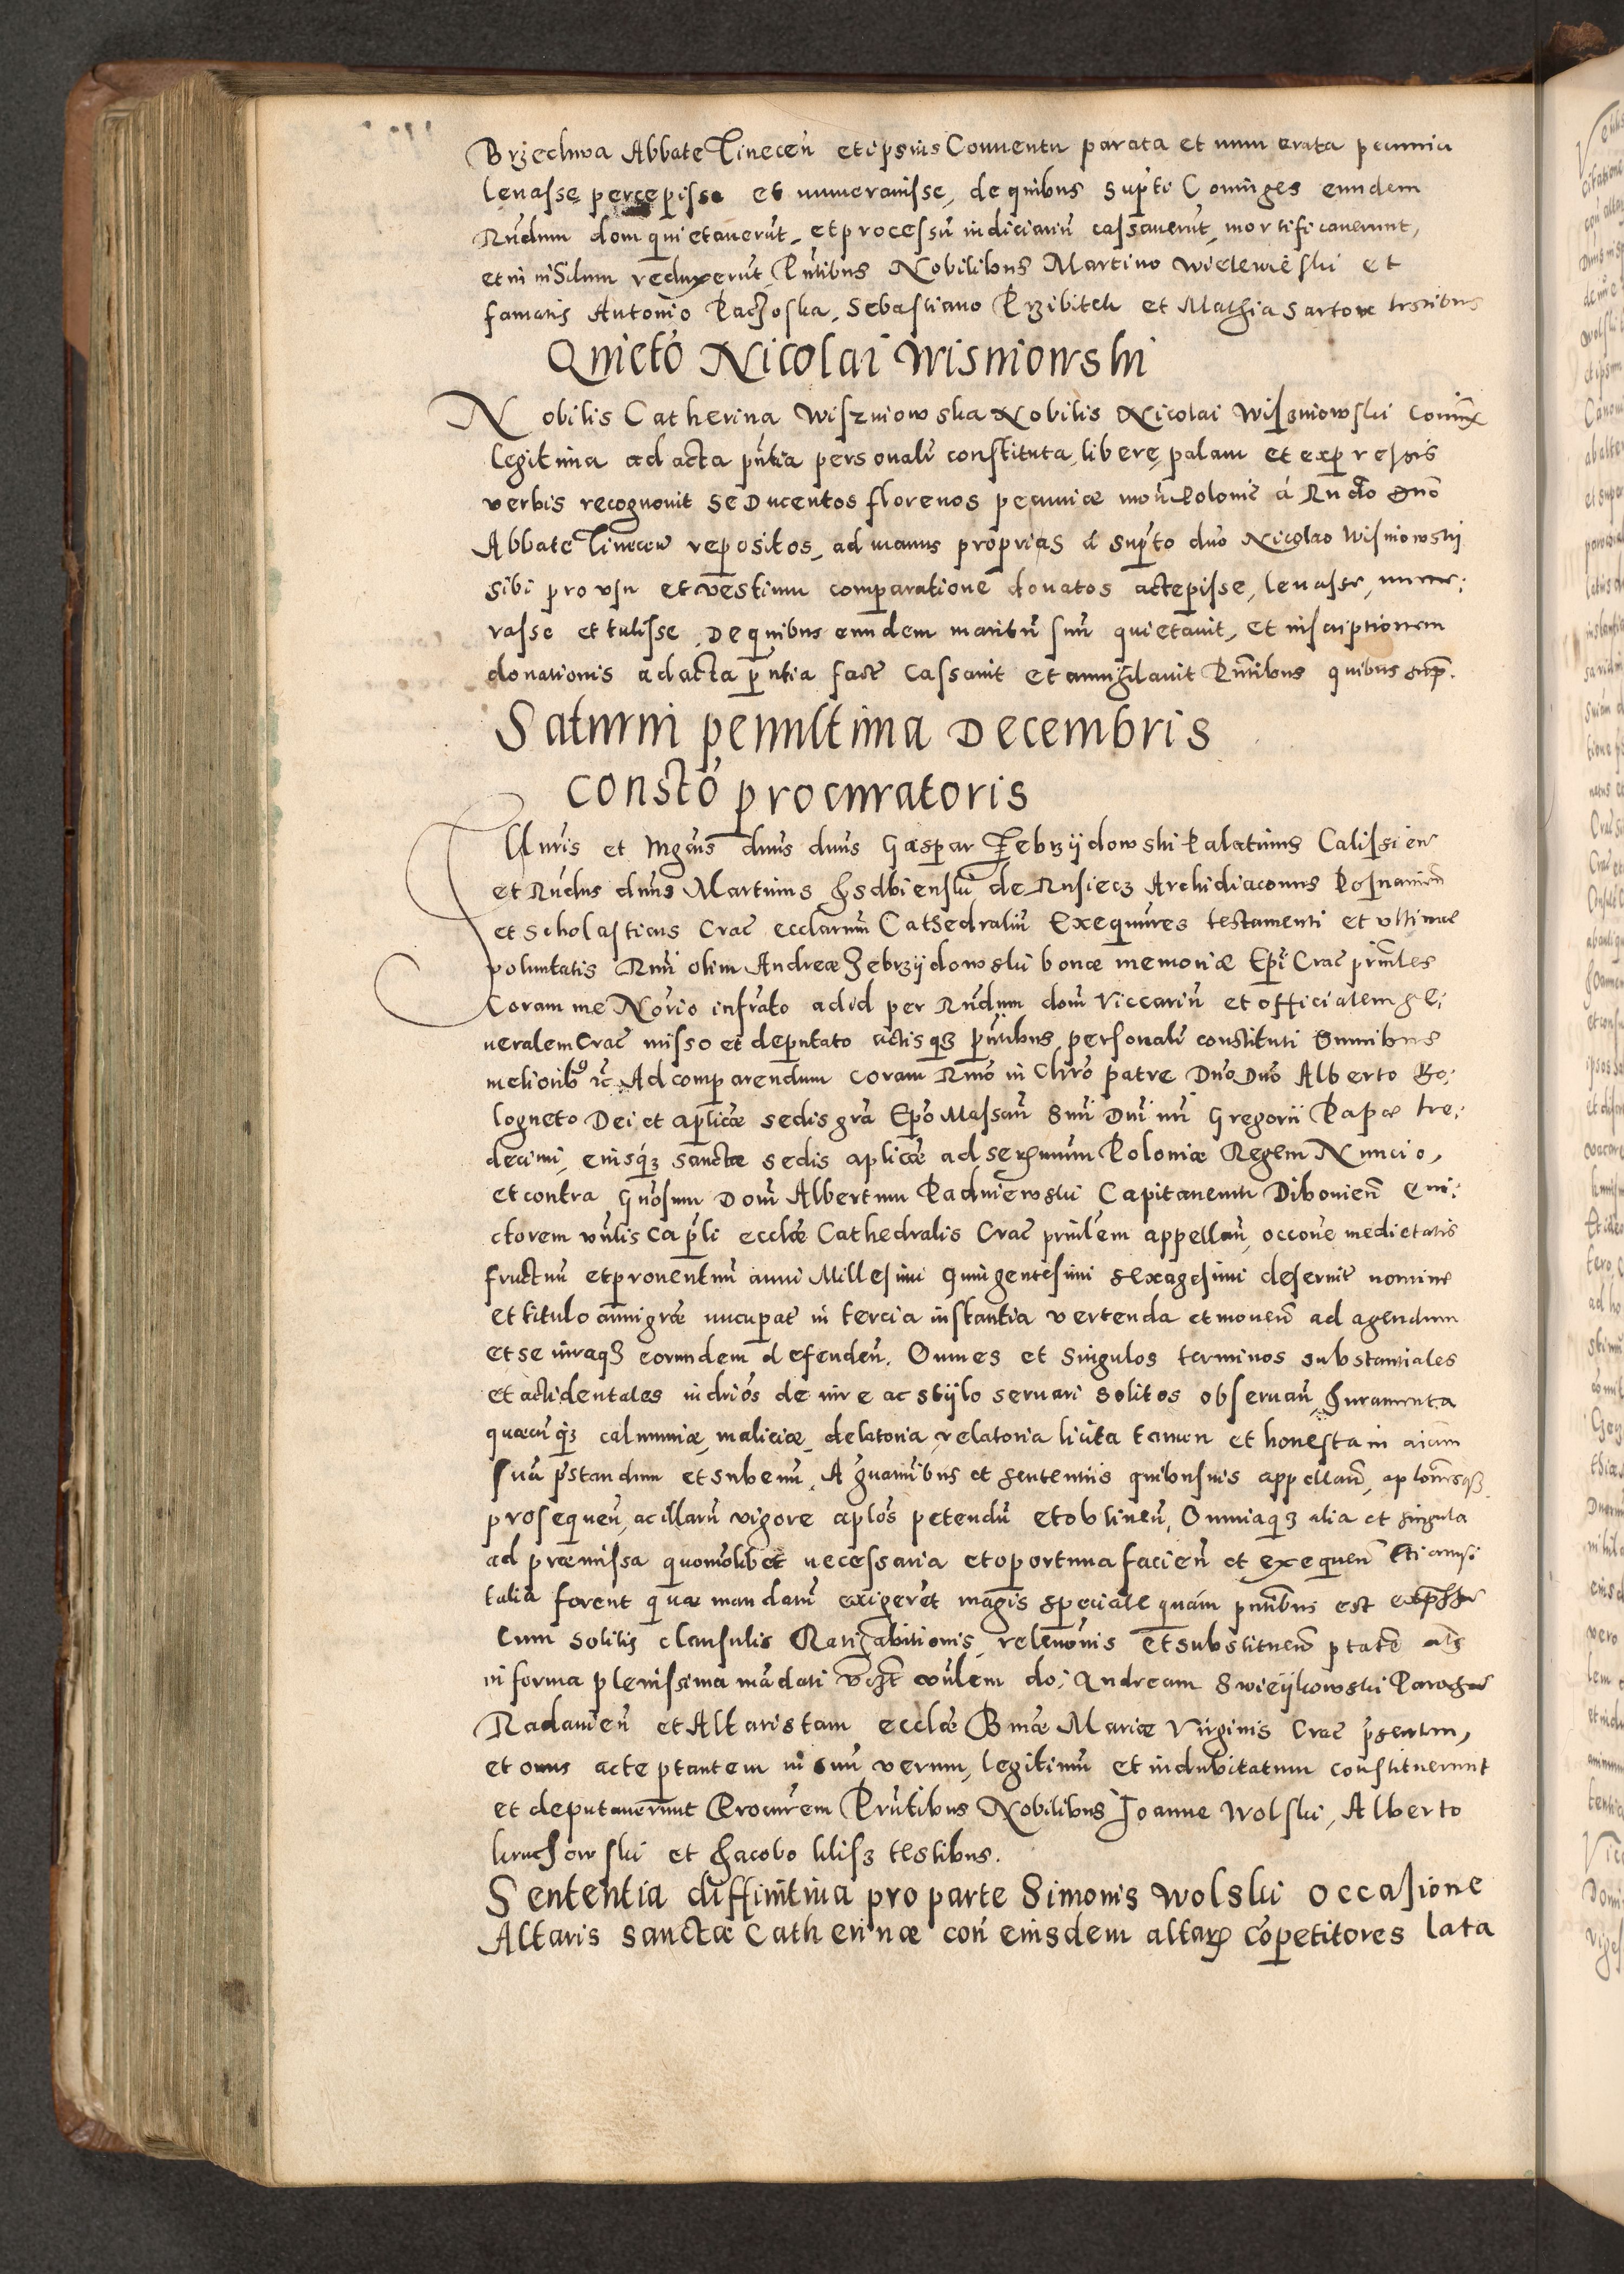 Brzechwa Abbate Tinecen̄ et ipsius Conuentu parata et numerata pecunia
leuasse percepisse et numerauisse, de quibus sup̄ti Coniuges eundem
Rn̄dum dom̄ quietauerūt, et processū iudiciariū cassauerūt, mortificauerunt,
et in nihilum reduxerūt, Pn̄tibus Nobilibus Martino Wielewieski et
famatis Antonio Pachoska, Sebastiano Przibitek et Mathia Sartore testibus
Quietō Nicolai Wisniowski
Nobilis Catherina Wiszniowska Nobilis Nicolai Wiszniowski Coniūx
legitima ad acta pn̄tia personalr̄ constituta, libere, palam et expressis
verbis recognouit se Ducentos florenos pecuniæ mon̄ Polonic̄ á Rn̄do dn̄o
Abbate Tinecen̄ repositos, ad manus proprias á sup̄to dn̄o Nicolao Wisniowskij
sibi pro vsu et vestium comparatione donatos accepisse, leuasse, nume:
rasse et tulisse, De quibus eundem maritū suū quietauit, et inscriptionem
donationis ad acta p̄ntia fact̄ Cassauit et annihilauit Pn̄tibus quibus sup̄.
Saturni penultima Decembris
constō procuratoris
Illuris et Mgcūs dn̄us dn̄us Gaspar Zebrzijdowski Palatinus Calissien̄
et Rn̄dus dn̄us Martinus Isdbienski de Rusiecz Archidiaconus Posnanien̄
et Scholasticus Crac̄ ecclarum̄ Cathedraliū Exequūres testamenti et vltimæ
voluntatis Rm̄i olim Andreæ Zebrzijdowski bonæ memoriæ Ep̄i Crac̄ prin̄les
Coram me Norio infrāto ad id per Rn̄dum dom̄ Viccariū et officialem ge:
neralem Crac̄ misso et deputato actisqꝫ pn̄tibus personalr̄ constituti Omnibus
melioribꝰ ꝛc̄ Ad comparendum coram Rm̄o in Chrō patre Dn̄o Dn̄o Alberto Bo:
logneto Dei et aplicæ sedis grā Epō Massan̄ Sm̄i Dn̄i nr̄i Gregorii Papæ tre:
decimi, eiusqꝫ sanctæ sedis aplicæ ad serenmum Poloniæ Regem Nuncio,
et contra Gn̄osum Dom̄ Albertum Padniewski Capitaneum Dibouien̄ eui:
ctorem vn̄lis Cap̄li ecclæ Cathedralis Crac̄ prin̄lem appellan̄, occone medietatis
fructuū et prouentuū anni Millesimi Quingentesimi sexagesimi deseruit̄ nomine
et titulo anni græ nucupat̄ in tercia instantia vertenda et mouen̄ ad agendum
et se iuraqꝫ eorundem defenden̄. Omnes et Singulos terminos substantiales
et accidentales iudrios de iure ac stijlo seruari solitos obseruan̄, Juramenta
quæcunqꝫ calumniæ, maliciæ, delatoria, relatoria licita tamen et honesta in aiam
suā p̄standum et subeun̄, A grauaībus et sententiis quibusuis appellan̄, aplonesqꝫ
prosequen̄, ac illarū vigore aplos petendū et obtinen̄, Omniaqꝫ alia et singula
ad præmissa quomolibet necessaria et oportuna facien̄ et exequen̄ Etiamsi
talia forent quæ mandatū exigerēt magis speciale quám pn̄tibus est expressū
Cum solitis clausulis Ratihabitionis, releuonis et substituen̄ ptatē als
in forma plenissima mādati vizt̄ vn̄lem do: Andream Swieijkowski Parochū
Radauien̄ et Altaristam ecclæ Btæ Mariæ Virginis Crac̄ p̄sentem,
et onus acceptantem in suū verum, legitimū et indubitatum constituerunt
et deputauerunt Procurem Pn̄tibus Nobilibus Joanne Wolski, Alberto
kruchowski et Jacobo kilisz testibus.
Sententia diffinitiua pro parte Simonis Wolski occasione
Altaris sanctæ Catherinæ con̄ eiusdem altaris cōpetitores lata